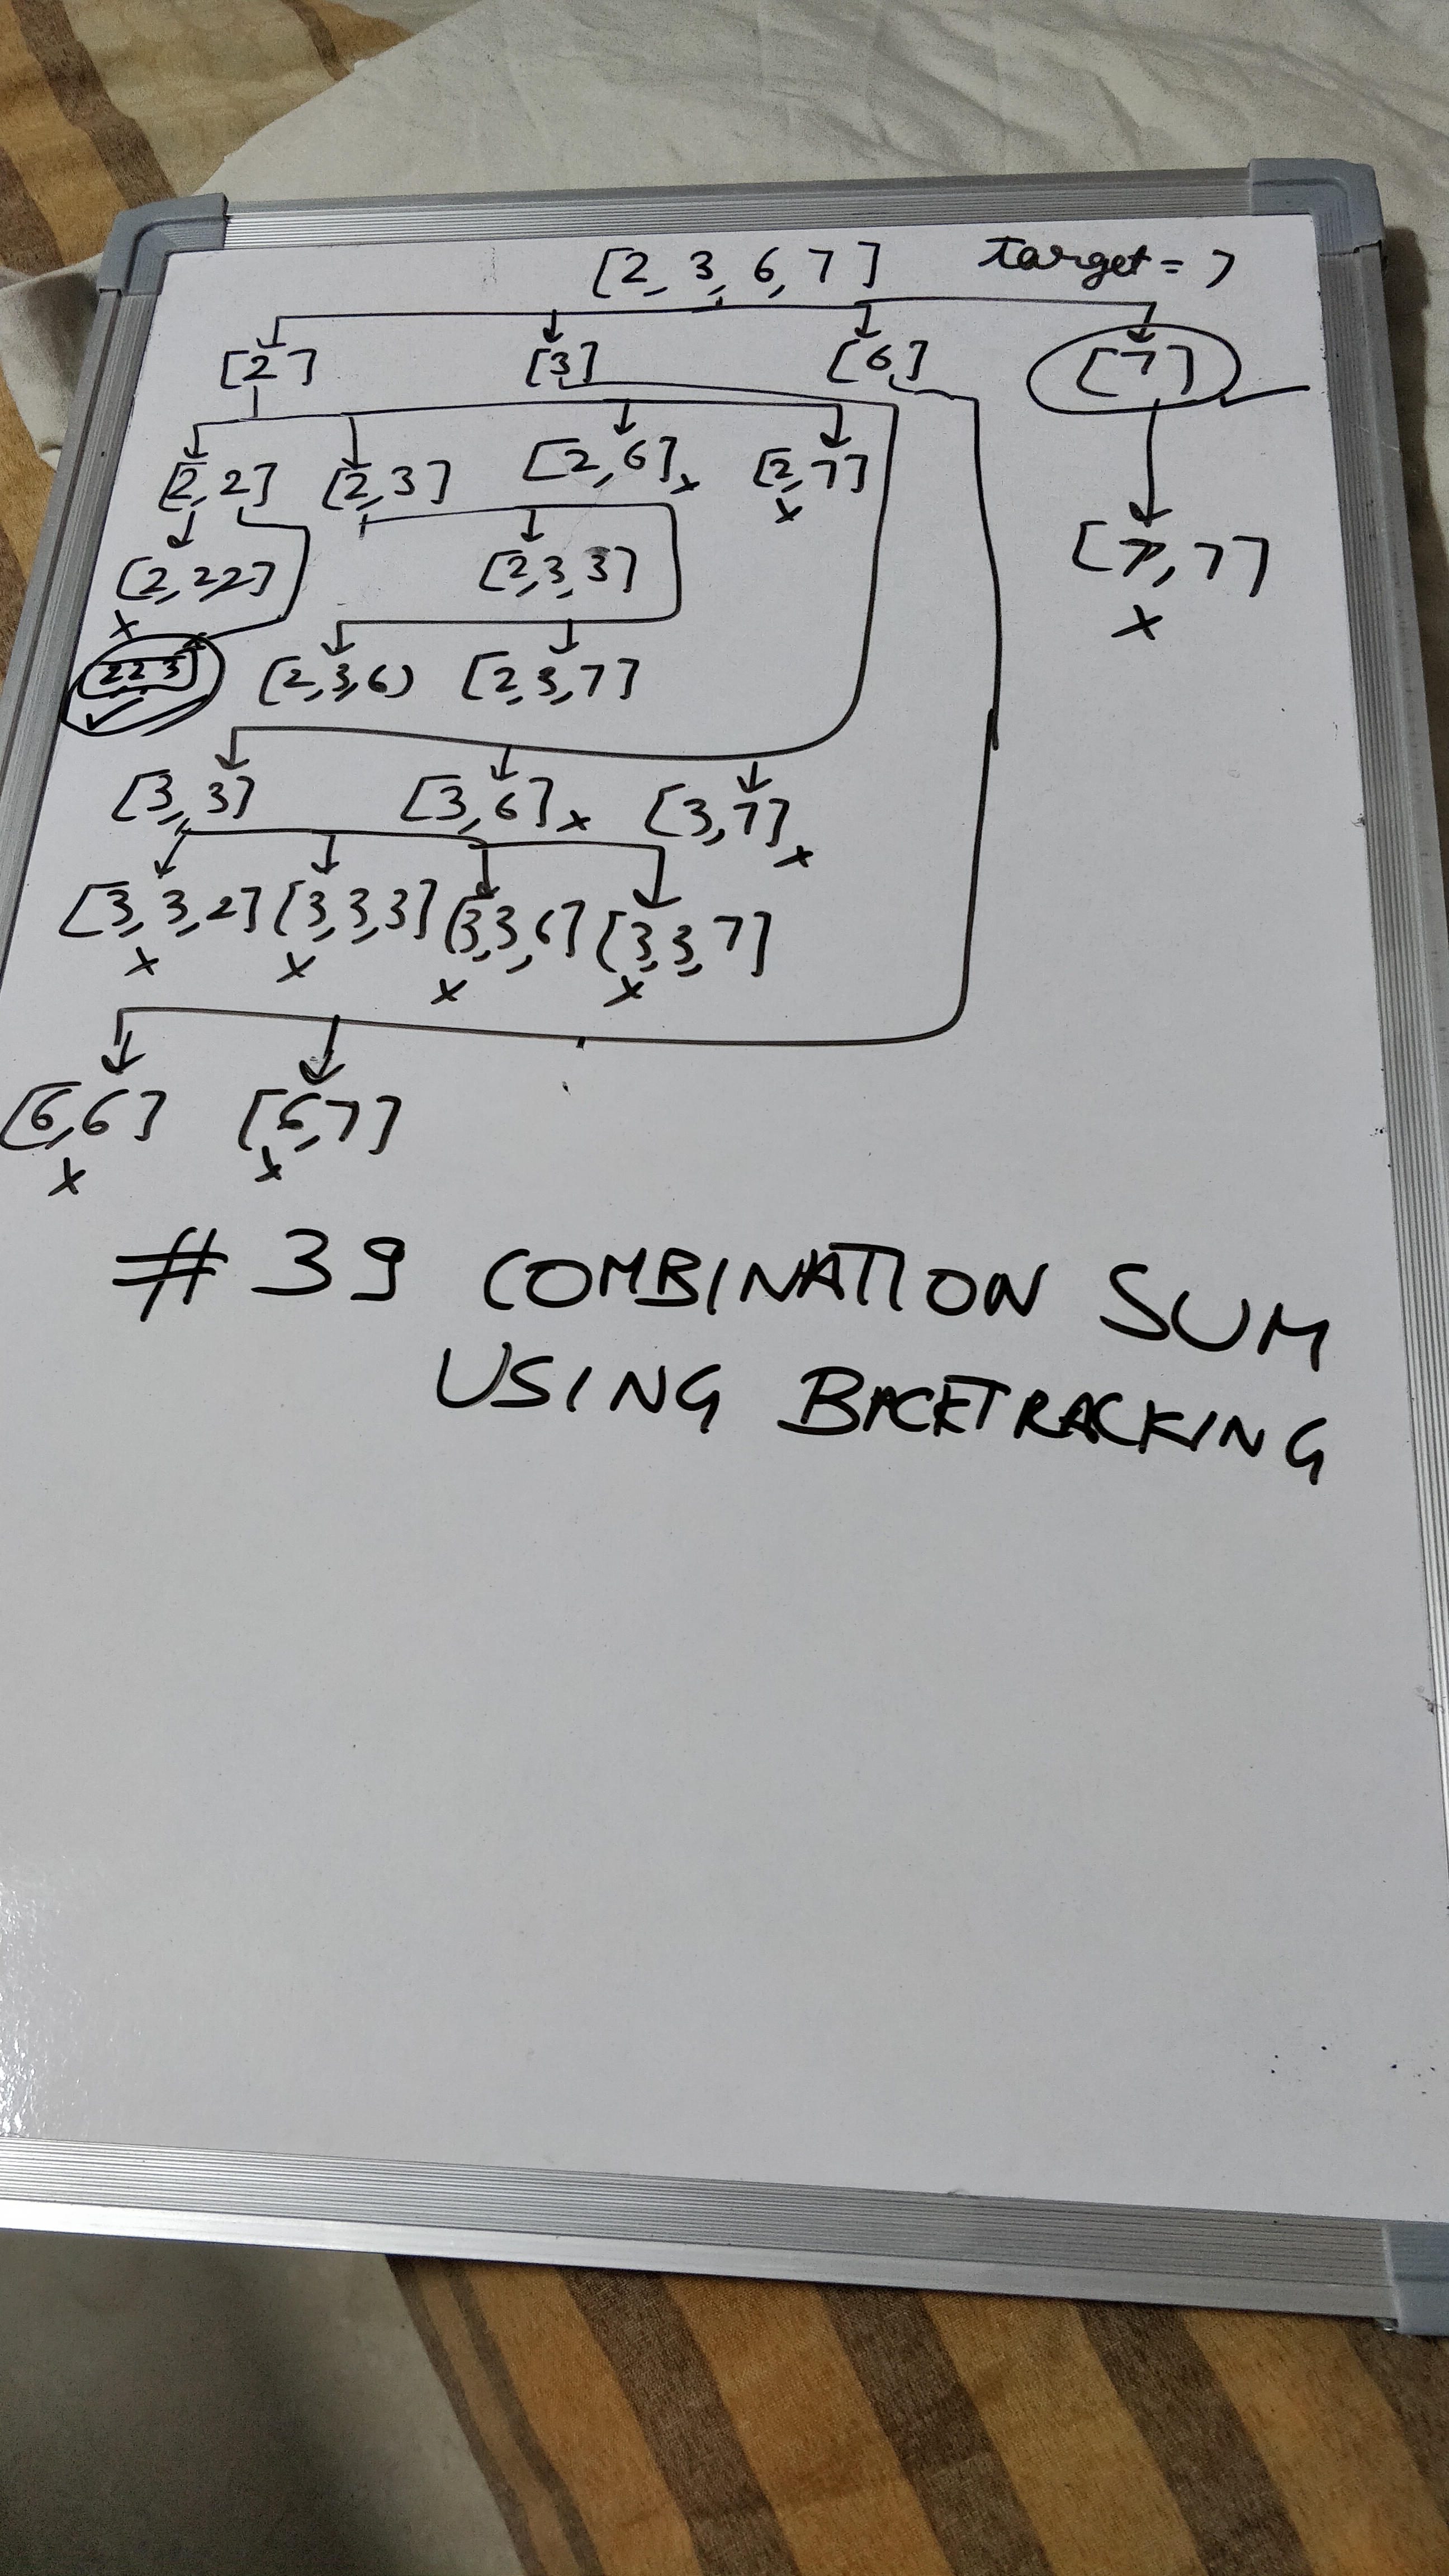 [2, 3, 6, 7] target = 7
[2] [3] [6] [7]
[2, 2] [2, 3] [2, 6] x [2, 7]
x
[2, 2 2] [2, 3, 3] [7, 7]
x x
2 2 3 [2, 3, 6) [2, 3, 7]
✓
[3, 3] [3, 6] x [3, 7] x
[3, 3, 2] [3, 3, 3] [3, 3, 6] [3, 3, 7]
x x x x
[6, 6] [6, 7]
x x
# 39 COMBINATION SUM
USING BACKTRACKING